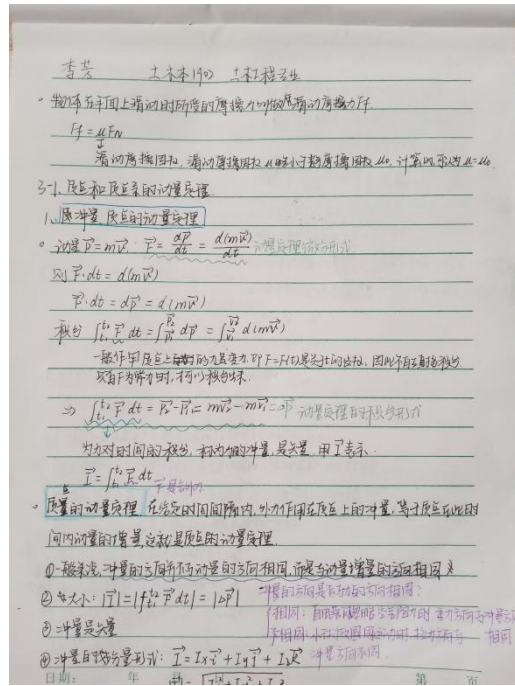 李芳 土木本1902 土木工程专业
。物体在平面上滑动时所受的摩擦力叫做滑动摩擦力Ff.
Ff = μFN
滑动摩擦因数, 滑动摩擦因数μ略小于静摩擦因数μ0, 计算时可认为μ=μ0.
3-1. 质点和质点系的动量定理
1、冲量 质点的动量定理
。动量P⃗=mv⃗: F⃗ = dP⃗/dt = d(mv⃗)/dt 动量定理微分形式
则 F⃗·dt = d(mv⃗)
F⃗·dt = dp⃗ = d(mv⃗)
积分 ∫t1t2 F⃗ dt = ∫P1P2 dp⃗ = ∫v1v2 d(mv⃗)
一般作用质点上的力是变力, 即F=F(t)是关于t的函数, 因此不能直接积分.
只有F为常力时, 才可以积出来.
⇒ ∫t1t2 F⃗ dt = P⃗2-P⃗1 = mv⃗2-mv⃗1 = ΔP⃗ 动量定理的积分形式
为力对时间的积分, 称为力的冲量, 是矢量. 用I⃗表示.
I⃗ = ∫t1t2 F⃗ dt F⃗是合外力
。质点的动量定理 在给定时间间隔内, 外力作用在质点上的冲量, 等于质点在此时
间内动量的增量, 这就是质点的动量定理
①一般来说, 冲量的方向并不与动量的方向相同, 而是与动量增量的方向相同
②大小: |I⃗| = |∫t1t2 F⃗ dt| = |ΔP⃗| 冲量的方向是否与力的方向相同?
③冲量是矢量 相同: 重力方向与冲量方
不相同: 相同
④冲量的分量形式: I⃗ = Ixi⃗ + Iyj⃗ + Izk⃗ 冲量方向不同.
日期: 年 第 页